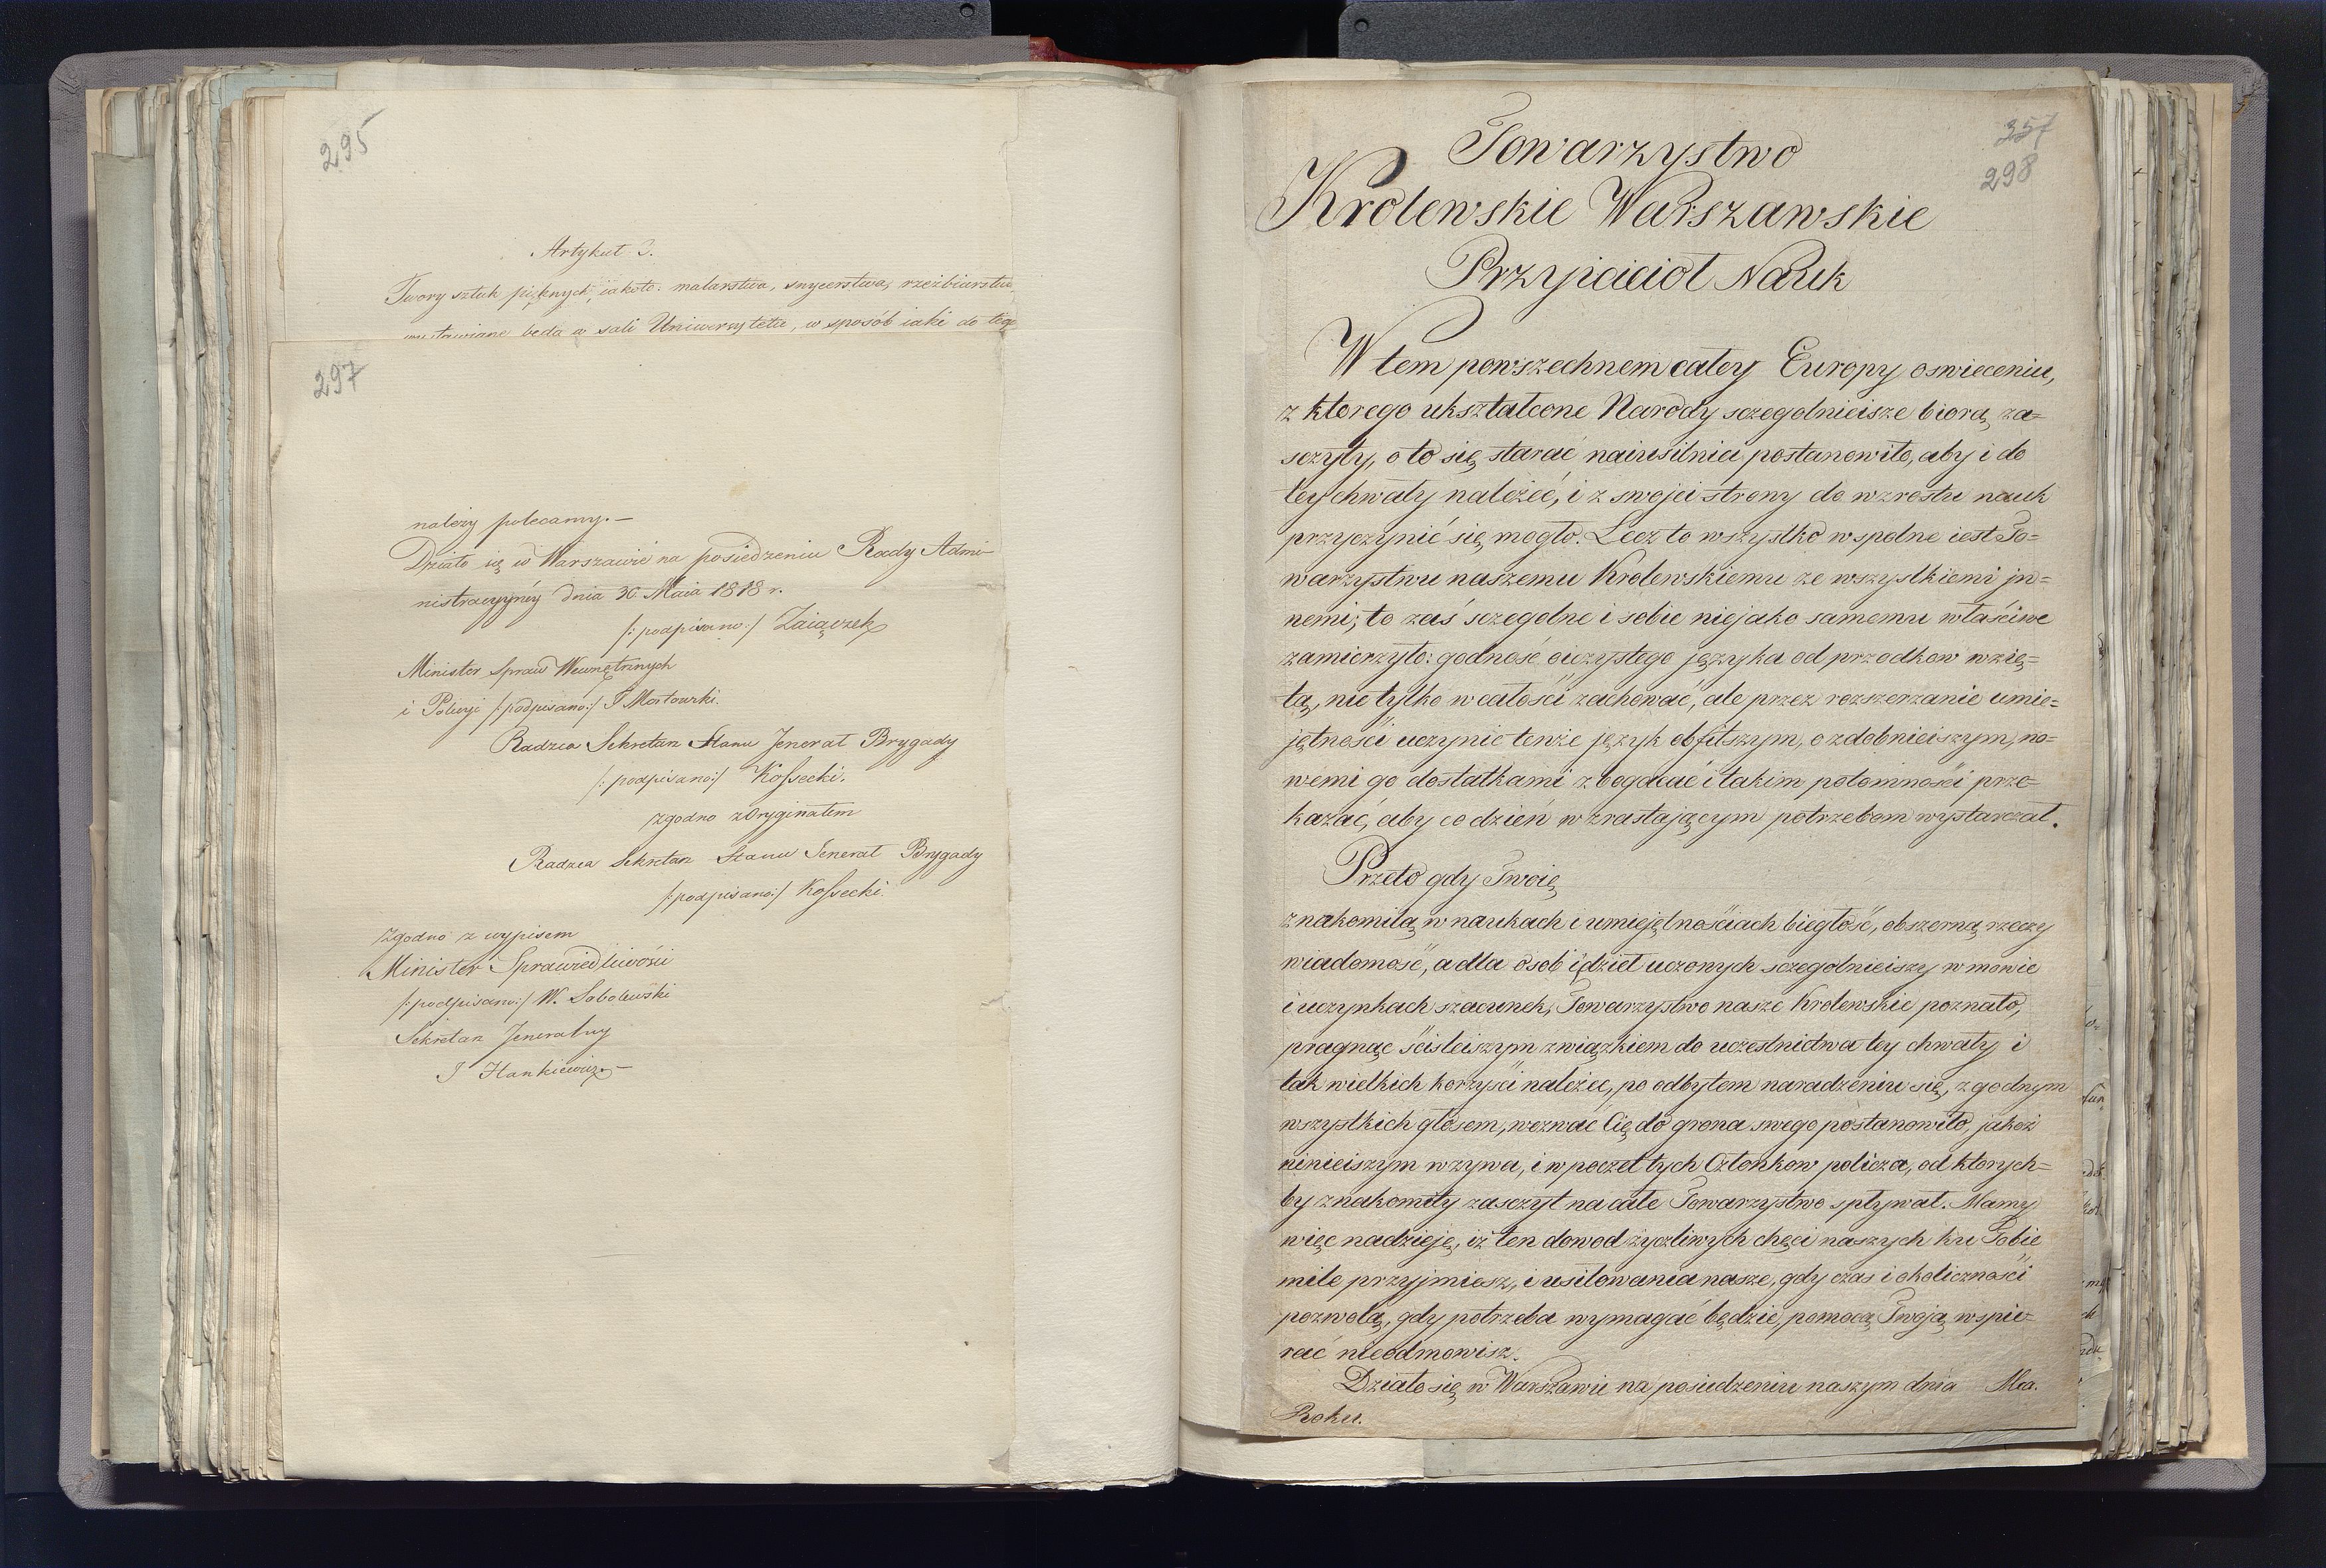 295
Artykuł 3.
Twory sztuk pięknych, iakoto: malarstwa, snycerstwa, rzeźbiarstwa,
wystawiane będa w sali Uniwersytetu, w sposób iaki do tego
297
należy polecamy.—
Działo się w Warszawie na posiedzeniu Rady Admi-
nistracyyney dnia 30. Maia 1818 r.
/:podpisano:/ Zaiączek
Minister Spraw Wewnętrznych
i Policyi /:podpisano:/ T Mostowski.
Radzca Sekretarz Stanu Jenerał Brygady
/:podpisano:/ Kossecki.
zgodno z Oryginałem
Radzca Sekretarz Stanu Jenerał Brygady
/:podpisano:/ Kossecki
Zgodno z wypisem
Minister Sprawiedliwości
/:podpisano:/ W. Sobolewski
Sekretarz Jeneralny
J Hankiewicz—
357
298
Towarzystwo
Krolewskie Warszawskie
Przyiacioł Nauk
W tem powszechnem całey Europy oswieceniu,
z ktorego ukształcone Narody sczegolnieisze biorą za=
sczyty, o to się starać naiusilniei postanowiło, aby i do
tey chwały należeć, i z swojei strony do wzrostu nauk
przyczynić się mogło. Lecz to wszystko wspolne iest To=
warzystwu naszemu Krolewskiemu ze wszystkiemi jn=
nemi; to zaś sczegolne i sobie niejako samemu właściwe
zamierzyło: godność oiczystego języka od przodkow wzię=
tą, nie tylko w całości zachować, ale przez rozszerzanie umie=
jętności uczynić tenże język obfitszym, ozdobnieiszym, no=
wemi go dostatkami zbogacać i takim potomności prze=
kazać, aby co dzień wzrastającym potrzebom wystarczał.
Przeto gdy Twoię
znakomitą w naukach i umiejętnościach biegłość, obszerną rzeczy
wiadomość, a dla osob i dzieł uczonych sczegolnieiszy w mowie
i uczynkach szacunek, Towarzystwo nasze Krolewskie poznało,
pragnąc ściśleiszym związkiem do uczestnictwa tey chwały i
tak wielkich korzyści należec, po odbytem naradzeniu się, zgodnym
wszystkich głosem, wezwać Cię do grona swego postanowiło, jakoż
ninieiszym wzywa, i w poczet tych Członkow policza, od ktorych=
by znakomity zasczyt na całe Towarzystwo spływał. Mamy
więc nadzieję, iż ten dowod życzliwych chęci naszych ku Tobie
mile przyjmiesz, i usiłowania nasze, gdy czas i okoliczności
pozwolą, gdy potrzeba wymagać będzie, pomocą Twoją wspie=
rać nieodmowisz.
Działo się w Warszawie na posiedzeniu naszym dnia Mca.
Roku.